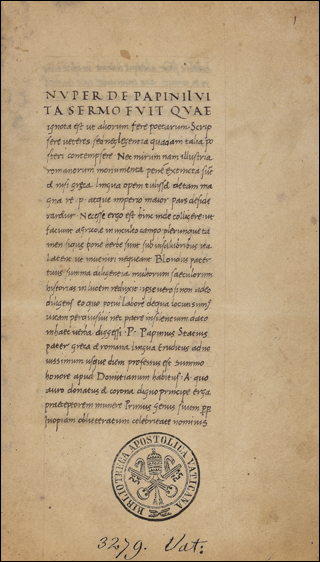 1
NVPER DE PAPINII VI
TA SERMO FVIT QVAE
ignota est ut aliorum fere poetarum. Scrip
sere veteres sed neglegentia quadam talia po
steri contempsere. Nec mirum nam illustria
romanorum monumenta pene extincta sūt
& nisi greca lingua opem tulisset etiam ma
gna re. p. atque imperio maior pars deside
Necesse ergo est hinc inde colligere: ut
faciunt agricole in inculto campo plerunque ta
men sique bone herbe sunt sub insalubribus ita
latent ut inveniri nequeant. pater
tuus summa diligentia multorum saeculorum
historias in lucem reduxit: ipse vero si non adeo
diligens eo quo potui labore
nec patre
digessi. P. Papinius Statius
pater greca & romana lingua eruditus ad no
vissimum usque diem professus est summo
honore apud Domitianum habitus. A quo
auro donatus & corona digno principe erga
praeceptorem munere Primus genus suum
celebritate nominis
BIBLIOTHECA APOSTOLICA VATICANA
3279. Vat: